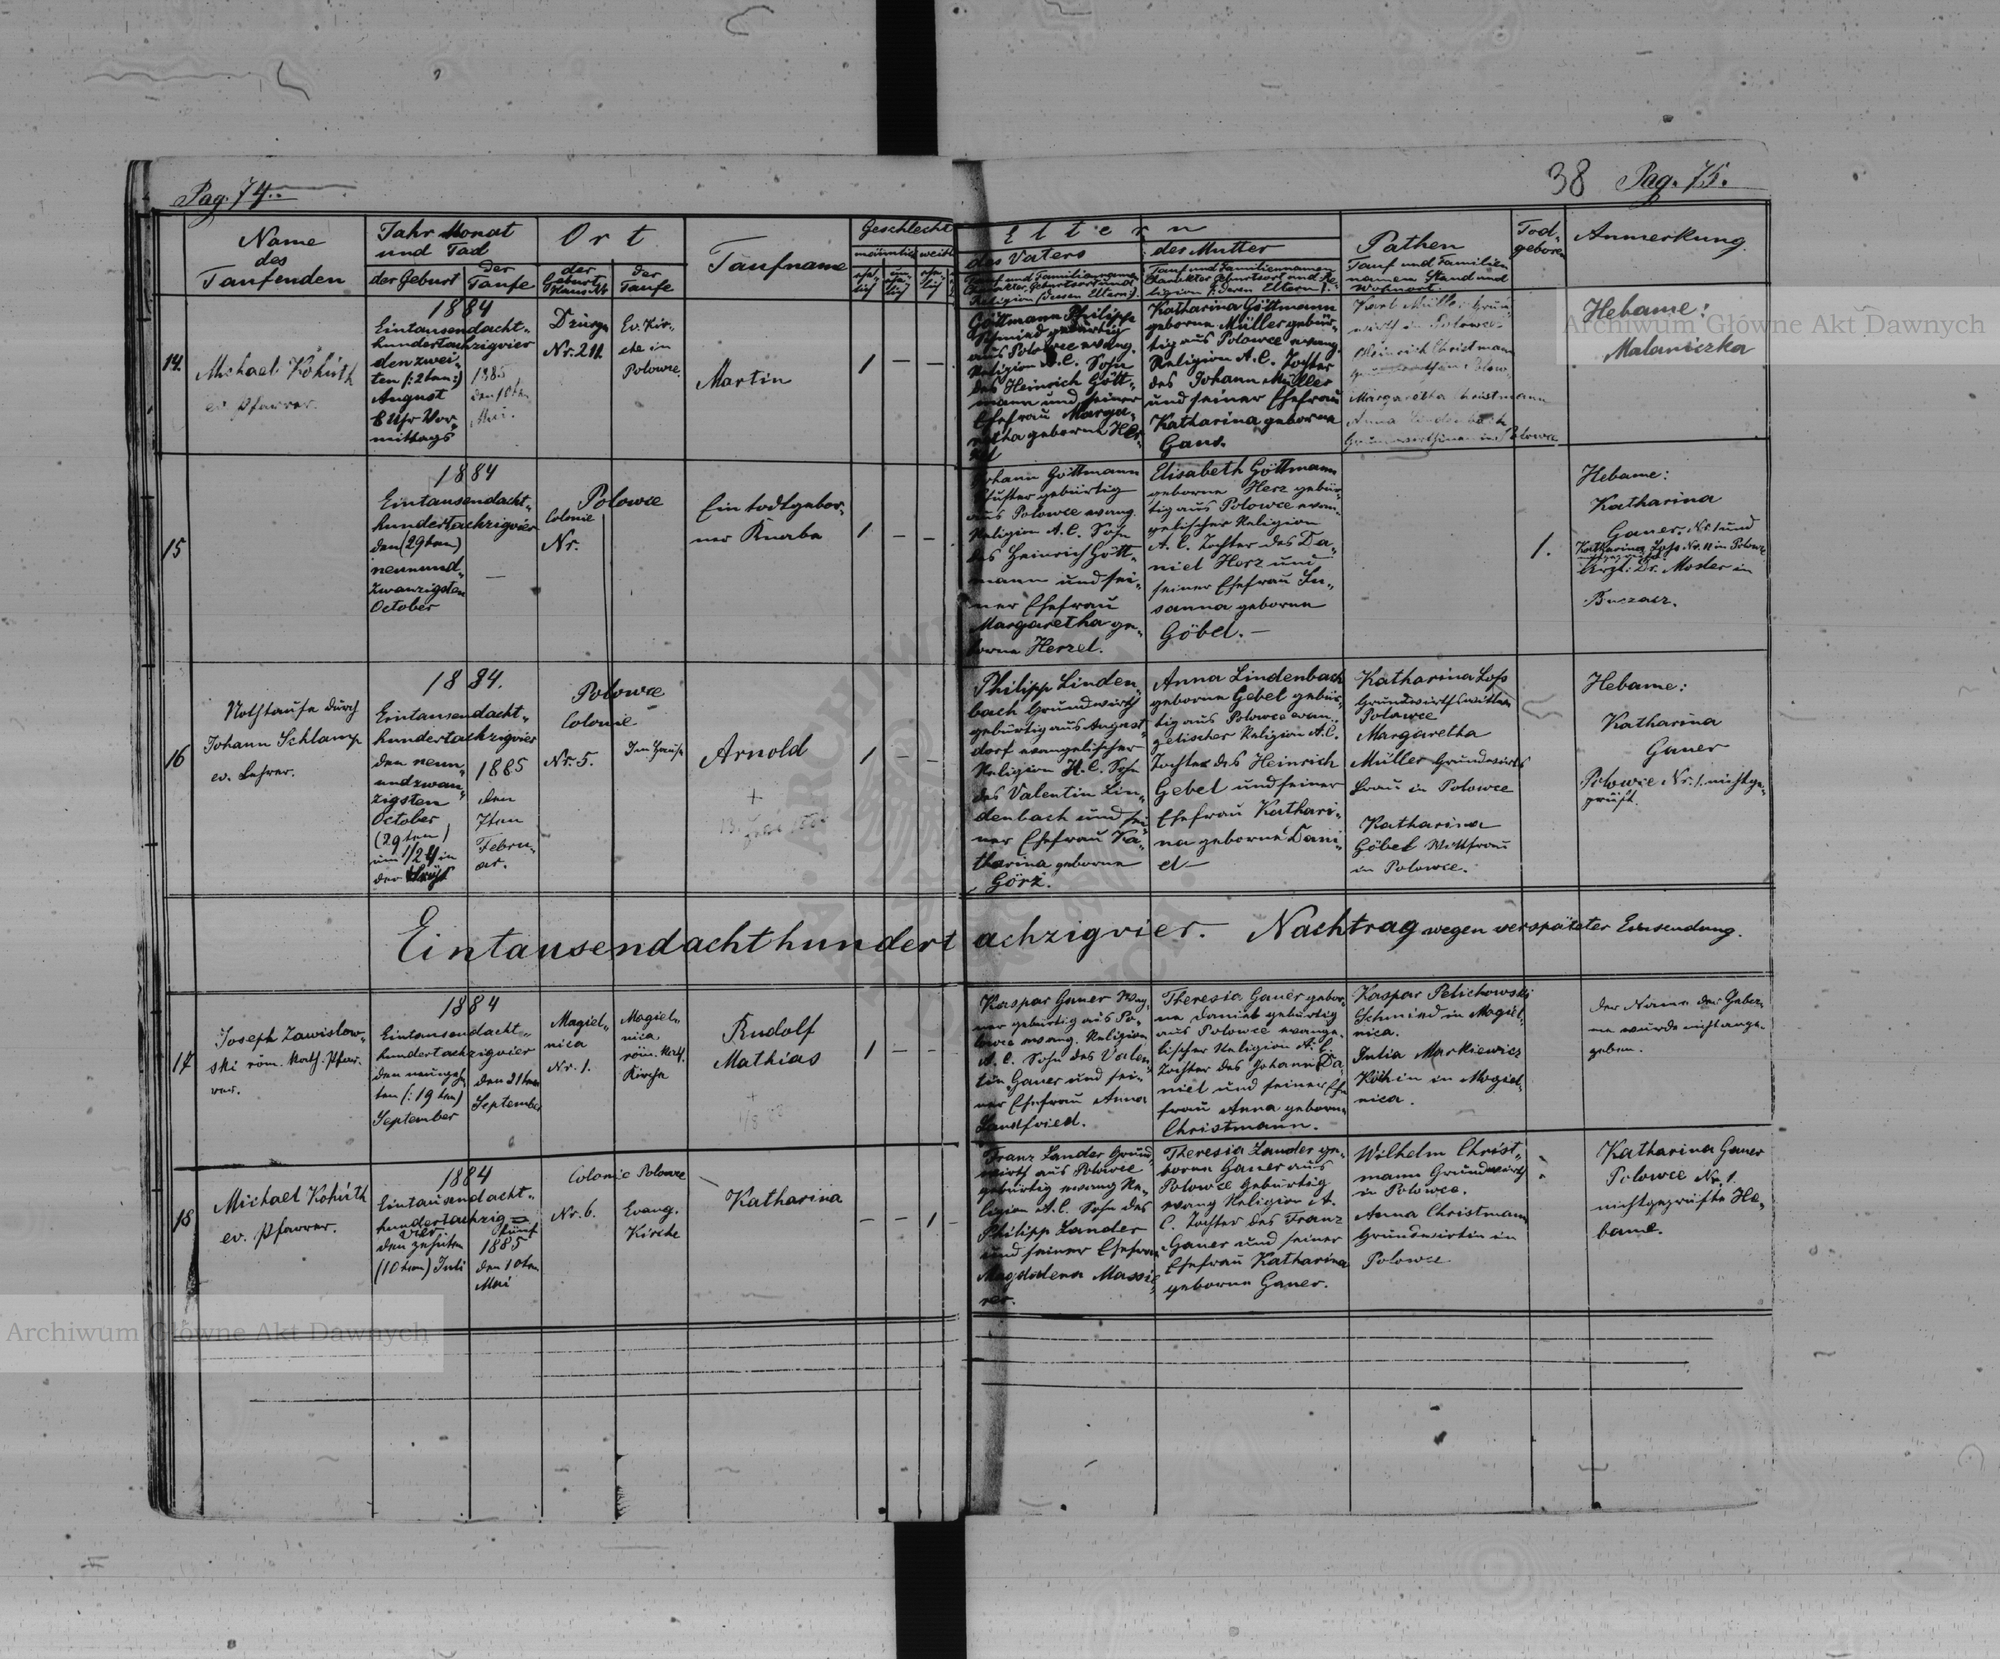 Pag. 74.
38 Pag. 75.
Name
des
Taufenden
Jahr Monat
und Tad
der Geburt
der
Taufe
Ort
der
Geburts
Haus Nr
der
Taufe
Taufname
Geschlecht
männlich
weibl
Eltern
des Vaters
der Mutter
Tauf und Familienname
Charakter, Geburtsort und
Religion (dessen Eltern).
Tauf und Familiennamen
Charakter, Geburtsort und Re-
ligion (: deren Eltern :).
Pathen
Tauf und Familien
namen Stand und
Wohnort.
Tod-
geboren
Anmerkung.
14.
Michael Kohúth
ev. Pfarrer.
1884
Eintausendacht-
hundertachzigvier
den zwei-
ten (: 2ten :)
August
8 Uhr Vor-
mittags
1885
den 10ten
Mai.
Nr. 211.
Ev. Kir-
che in
Polowce.
Martin
1 — —
Göttmann Philipp
Schmied gebürtig
aus Polowce evang.
Religion A. C. Sohn
des Heinrich Gött-
mann und seiner
Ehefrau Marga-
retha geborne Her-
zel
Katharina Göttmann
geborne Müller gebür-
tig aus Polowce evang.
Religion A. C. Tochter
des Johann Müller
und seiner Ehefrau
Katharina geborne
Gans.
Karl Müller Grund
wirth in Polowce
Heinrich Christmann
Margaretha Christmann
Anna Lindenbach
Grundwirthinen in Polowce
Hebame:
Malaniczka
15
1884
Eintausendacht-
hundertachzigvier
den (29ten)
neunund-
zwanzigsten
October
—
Polowce
Colonie
Nr.
Ein todtgebor-
ner Knabe
1 — —
Johann Göttmann
gebürtig
aus Polowce evang.
Religion A. C. Sohn
des Heinrich Gött-
mann und sei-
ner Ehefrau
Margaretha ge-
borne Herzel.
Elisabeth Göttmann
geborne Herz gebür-
tig aus Polowce evan-
gelischer Religion
A. C. Tochter des Da-
niel Herz und
seiner Ehefrau Su-
sanna geborne
Göbel. —
1.
Hebame:
Katharina
Gauer Nr. 1 und
Katharina Loss Nr. 11 in Polowce
Arzt: Dr. Mosler in
Buczacz.
16
Nothtaufe durch
Johann Schlamp
ev. Lehrer.
1884.
Eintausendacht-
hundertachzigvier
den neun-
undzwan-
zigsten
October
(29ten)
um 1/2 4 in
der Früh
1885
den
7ten
Febru-
ar.
Polowce
Colonie
Nr. 5.
Im Hause
Arnold
+
1 — —
Philipp Linden-
bach Grundwirth
gebürtig aus August-
dorf evangelischer
Religion H. C. Sohn
des Valentin Lin-
denbach und sei-
ner Ehefrau Ka-
tharina geborne
Görz.
Anna Lindenbach
geborne Gebel gebür-
tig aus Polowce evan-
gelischer Religion A. C.
Tochter des Heinrich
Gebel und seiner
Ehefrau Kathari-
na geborne Dani-
el —
Katharina Loss
Grundwirthswittwe
Polowce
Margaretha
Müller Grundwirts
frau in Polowce
Katharina
Göbel Wittfrau
in Polowce.
Hebame:
Katharina
Gauer
Polowce Nr. 1. nichtge-
prüft.
Eintausendachthundert achzigvier. Nachtrag wegen verspäteter Einsendung.
17
Joseph Zawislow-
ski röm. Kath. Pfar-
rer.
1884
Eintausendacht-
hundertachzigvier
den neunzehn
ten (: 19ten)
September
den 21ten
September
Magiel-
nica
Nr. 1.
Magiel-
nica
röm. Kath.
Kirche
Rudolf
Mathias
+
1 — —
Kaspar Gauer Wag-
ner gebürtig aus Po-
lowce evang. Religion
A. C. Sohn des Valen
tin Gauer und sei-
ner Ehefrau Anna
Landfried.
Theresia Gauer gebor-
ne Daniel gebürtig
aus Polowce evange-
lischer Religion A. C.
Tochter des Johann Da-
niel und seiner Ehe
frau Anna geborne
Christmann.
Kaspar Pelichowski
Schmied in Magiel-
nica.
Julia Markiewicz
Köchin in Magiel-
nica.
Der Name der Gebor-
ne wurde nicht ange-
geben.
18
Michael Kohúth
ev. Pfarrer.
1884
Eintausendacht-
hundertachzig=
vier
fünf
den zehnten
(10ten) Juli
1885
den 10ten
Mai
Colonie Polowce
Nr. 6.
Evang.
Kirche
Katharina
— — 1
Franz Zander Grund-
wirth aus Polowce
gebürtig evang Re-
ligion A. C. Sohn des
Philipp Zander
und seiner Ehefrau
Magdalena Massie-
rer.
Theresia Zander ge-
borne Gauer aus
Polowce Gebürtig
evang Religion A.
C. Tochter des Franz
Gauer und seiner
Ehefrau Katharina
geborne Gauer.
Wilhelm Christ-
mann Grundwirth
in Polowce.
Anna Christmann
Grundwirtin in
Polowce
Katharina Gauer
Polowce Nr. 1.
nichtgeprüfte He-
bame.
Archiwum Główne Akt Dawnych
Archiwum Główne Akt Dawnych